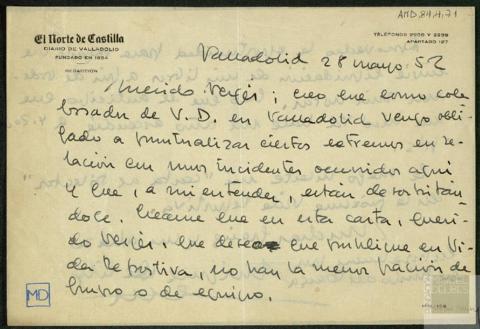 AMD, 84, 4, 71
El Norte de Castilla
DIARIO DE VALLADOLID
FUNDADO EN 1854
REDACCIÓN
TELÉFONOS 2200 Y 2239
APARTADO 127
Valladolid 28 mayo. 52
Querido Vergés; creo que como cola
borador de V. D. en Valladolid vengo obli
gado a puntualizar ciertos extremos en re-
lación con unos incidentes ocurridos aquí
y que, a mi entender, están desorbitán
dose. Créame que en esta carta, queri
do Vergés, que deseo que publique en Vi
da Deportiva, no hay la menor pasión de
grupo o de equipo.
MD